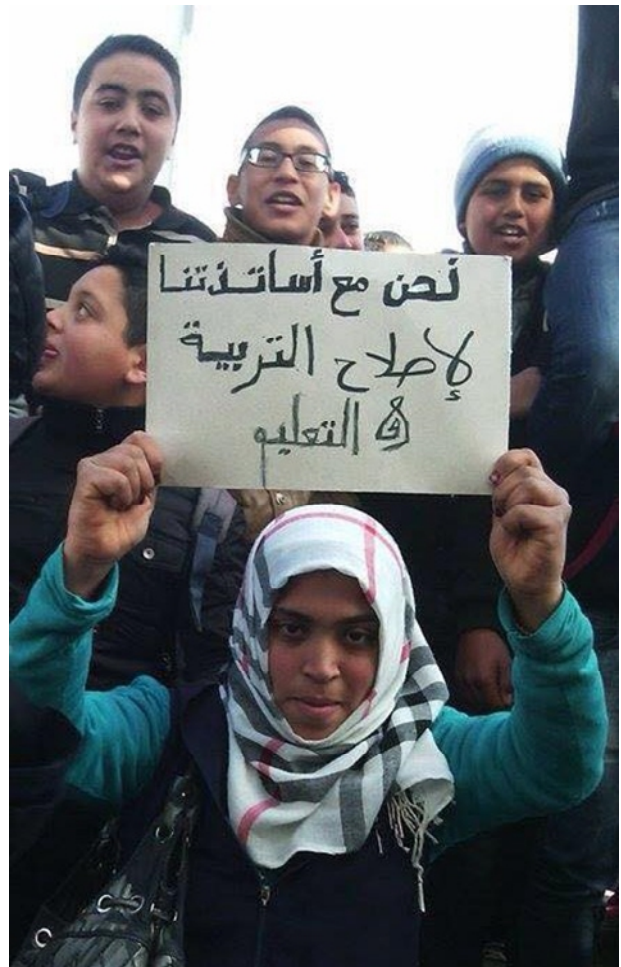 نحن مع أساتذتنا
لإصلاح التربية
و التعليم